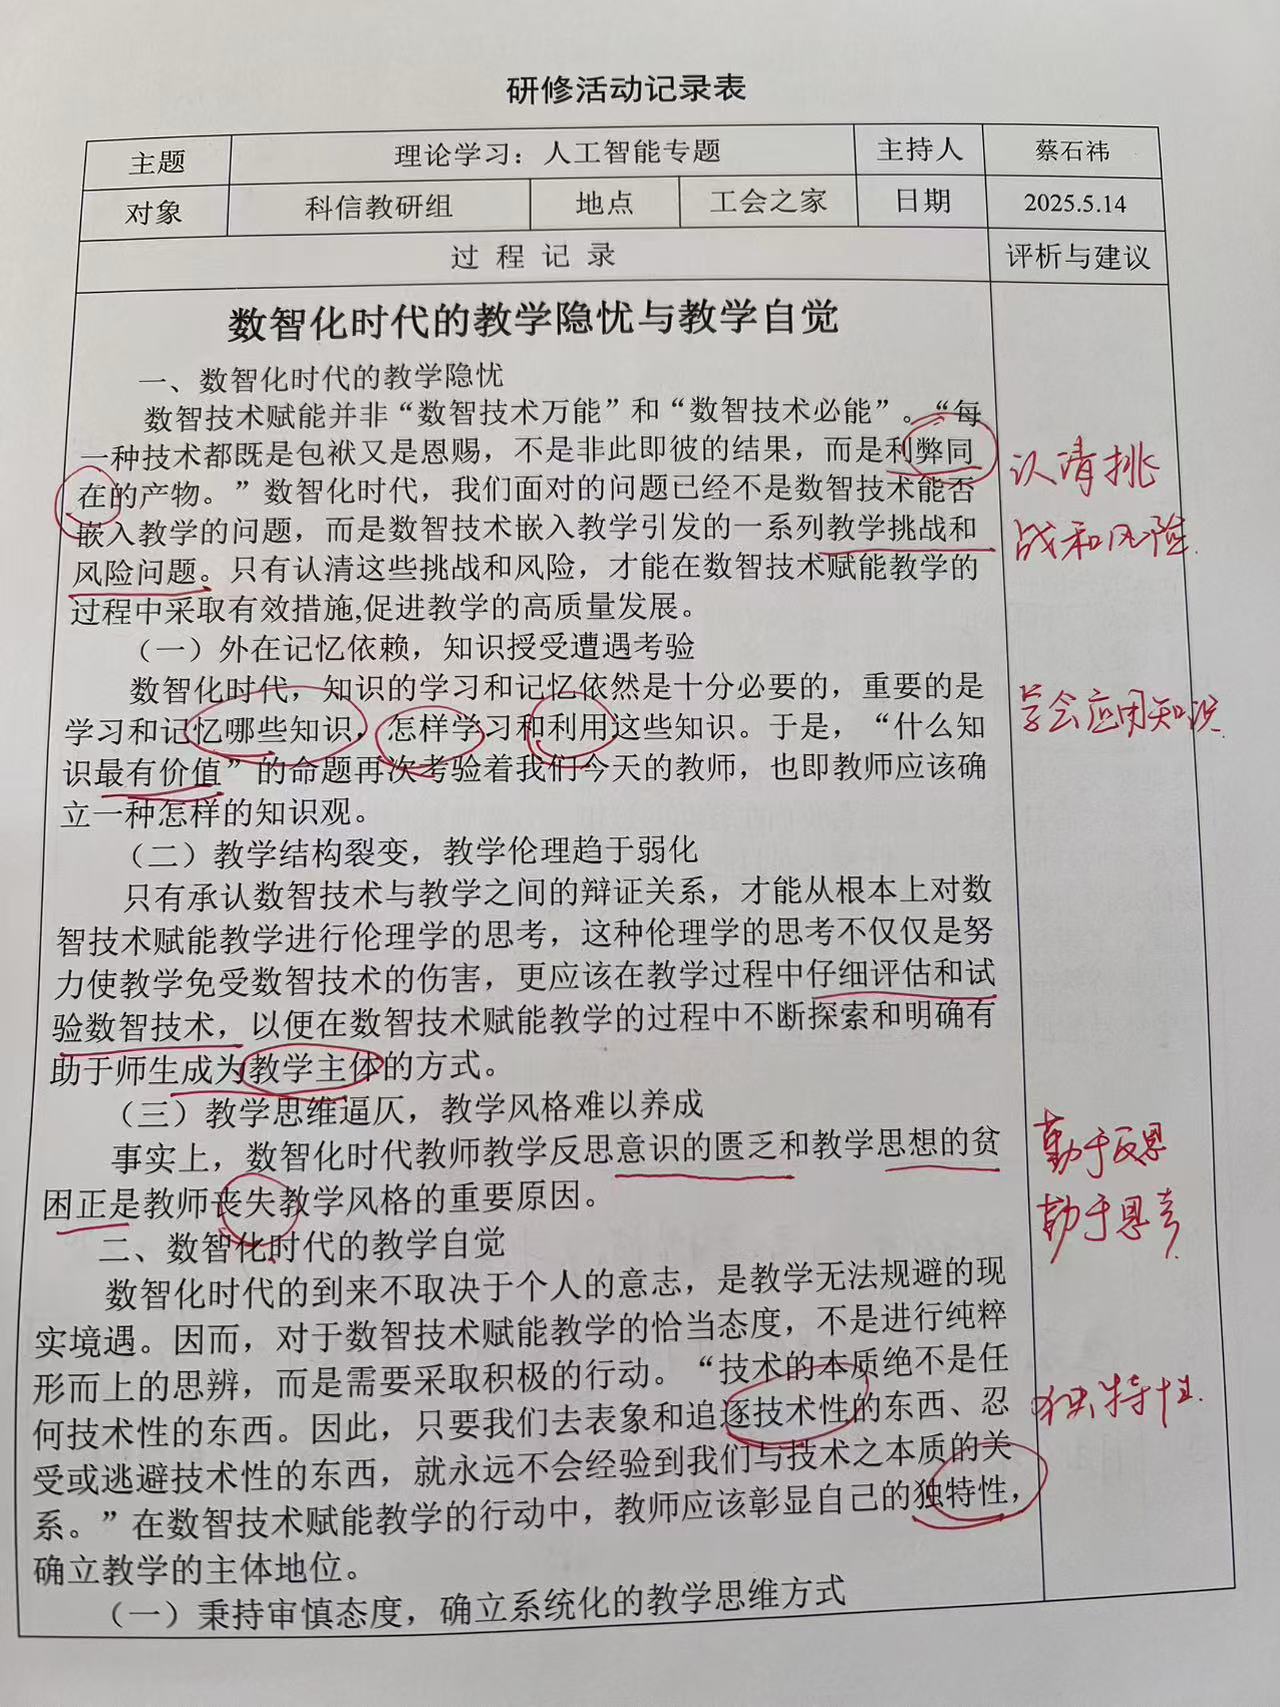 研修活动记录表
主题 理论学习：人工智能专题 主持人 蔡石祎
对象 科信教研组 地点 工会之家 日期 2025.5.14
过 程 记 录 评析与建议
数智化时代的教学隐忧与教学自觉
一、数智化时代的教学隐忧
数智技术赋能并非“数智技术万能”和“数智技术必能”。“每
一种技术都既是包袱又是恩赐，不是非此即彼的结果，而是利弊同
在的产物。”数智化时代，我们面对的问题已经不是数智技术能否
嵌入教学的问题，而是数智技术嵌入教学引发的一系列教学挑战和
风险问题。只有认清这些挑战和风险，才能在数智技术赋能教学的
过程中采取有效措施,促进教学的高质量发展。
认清挑
战和风险.
（一）外在记忆依赖，知识授受遭遇考验
数智化时代，知识的学习和记忆依然是十分必要的，重要的是
学习和记忆哪些知识，怎样学习和利用这些知识。于是，“什么知
识最有价值”的命题再次考验着我们今天的教师，也即教师应该确
立一种怎样的知识观。
学会应用知识.
（二）教学结构裂变，教学伦理趋于弱化
只有承认数智技术与教学之间的辩证关系，才能从根本上对数
智技术赋能教学进行伦理学的思考，这种伦理学的思考不仅仅是努
力使教学免受数智技术的伤害，更应该在教学过程中仔细评估和试
验数智技术，以便在数智技术赋能教学的过程中不断探索和明确有
助于师生成为教学主体的方式。
（三）教学思维逼仄，教学风格难以养成
事实上，数智化时代教师教学反思意识的匮乏和教学思想的贫
困正是教师丧失教学风格的重要原因。
勤于反思
勤于思考.
二、数智化时代的教学自觉
数智化时代的到来不取决于个人的意志，是教学无法规避的现
实境遇。因而，对于数智技术赋能教学的恰当态度，不是进行纯粹
形而上的思辨，而是需要采取积极的行动。“技术的本质绝不是任
何技术性的东西。因此，只要我们去表象和追逐技术性的东西、忍
受或逃避技术性的东西，就永远不会经验到我们与技术之本质的关
系。”在数智技术赋能教学的行动中，教师应该彰显自己的独特性，
确立教学的主体地位。
独特性.
（一）秉持审慎态度，确立系统化的教学思维方式